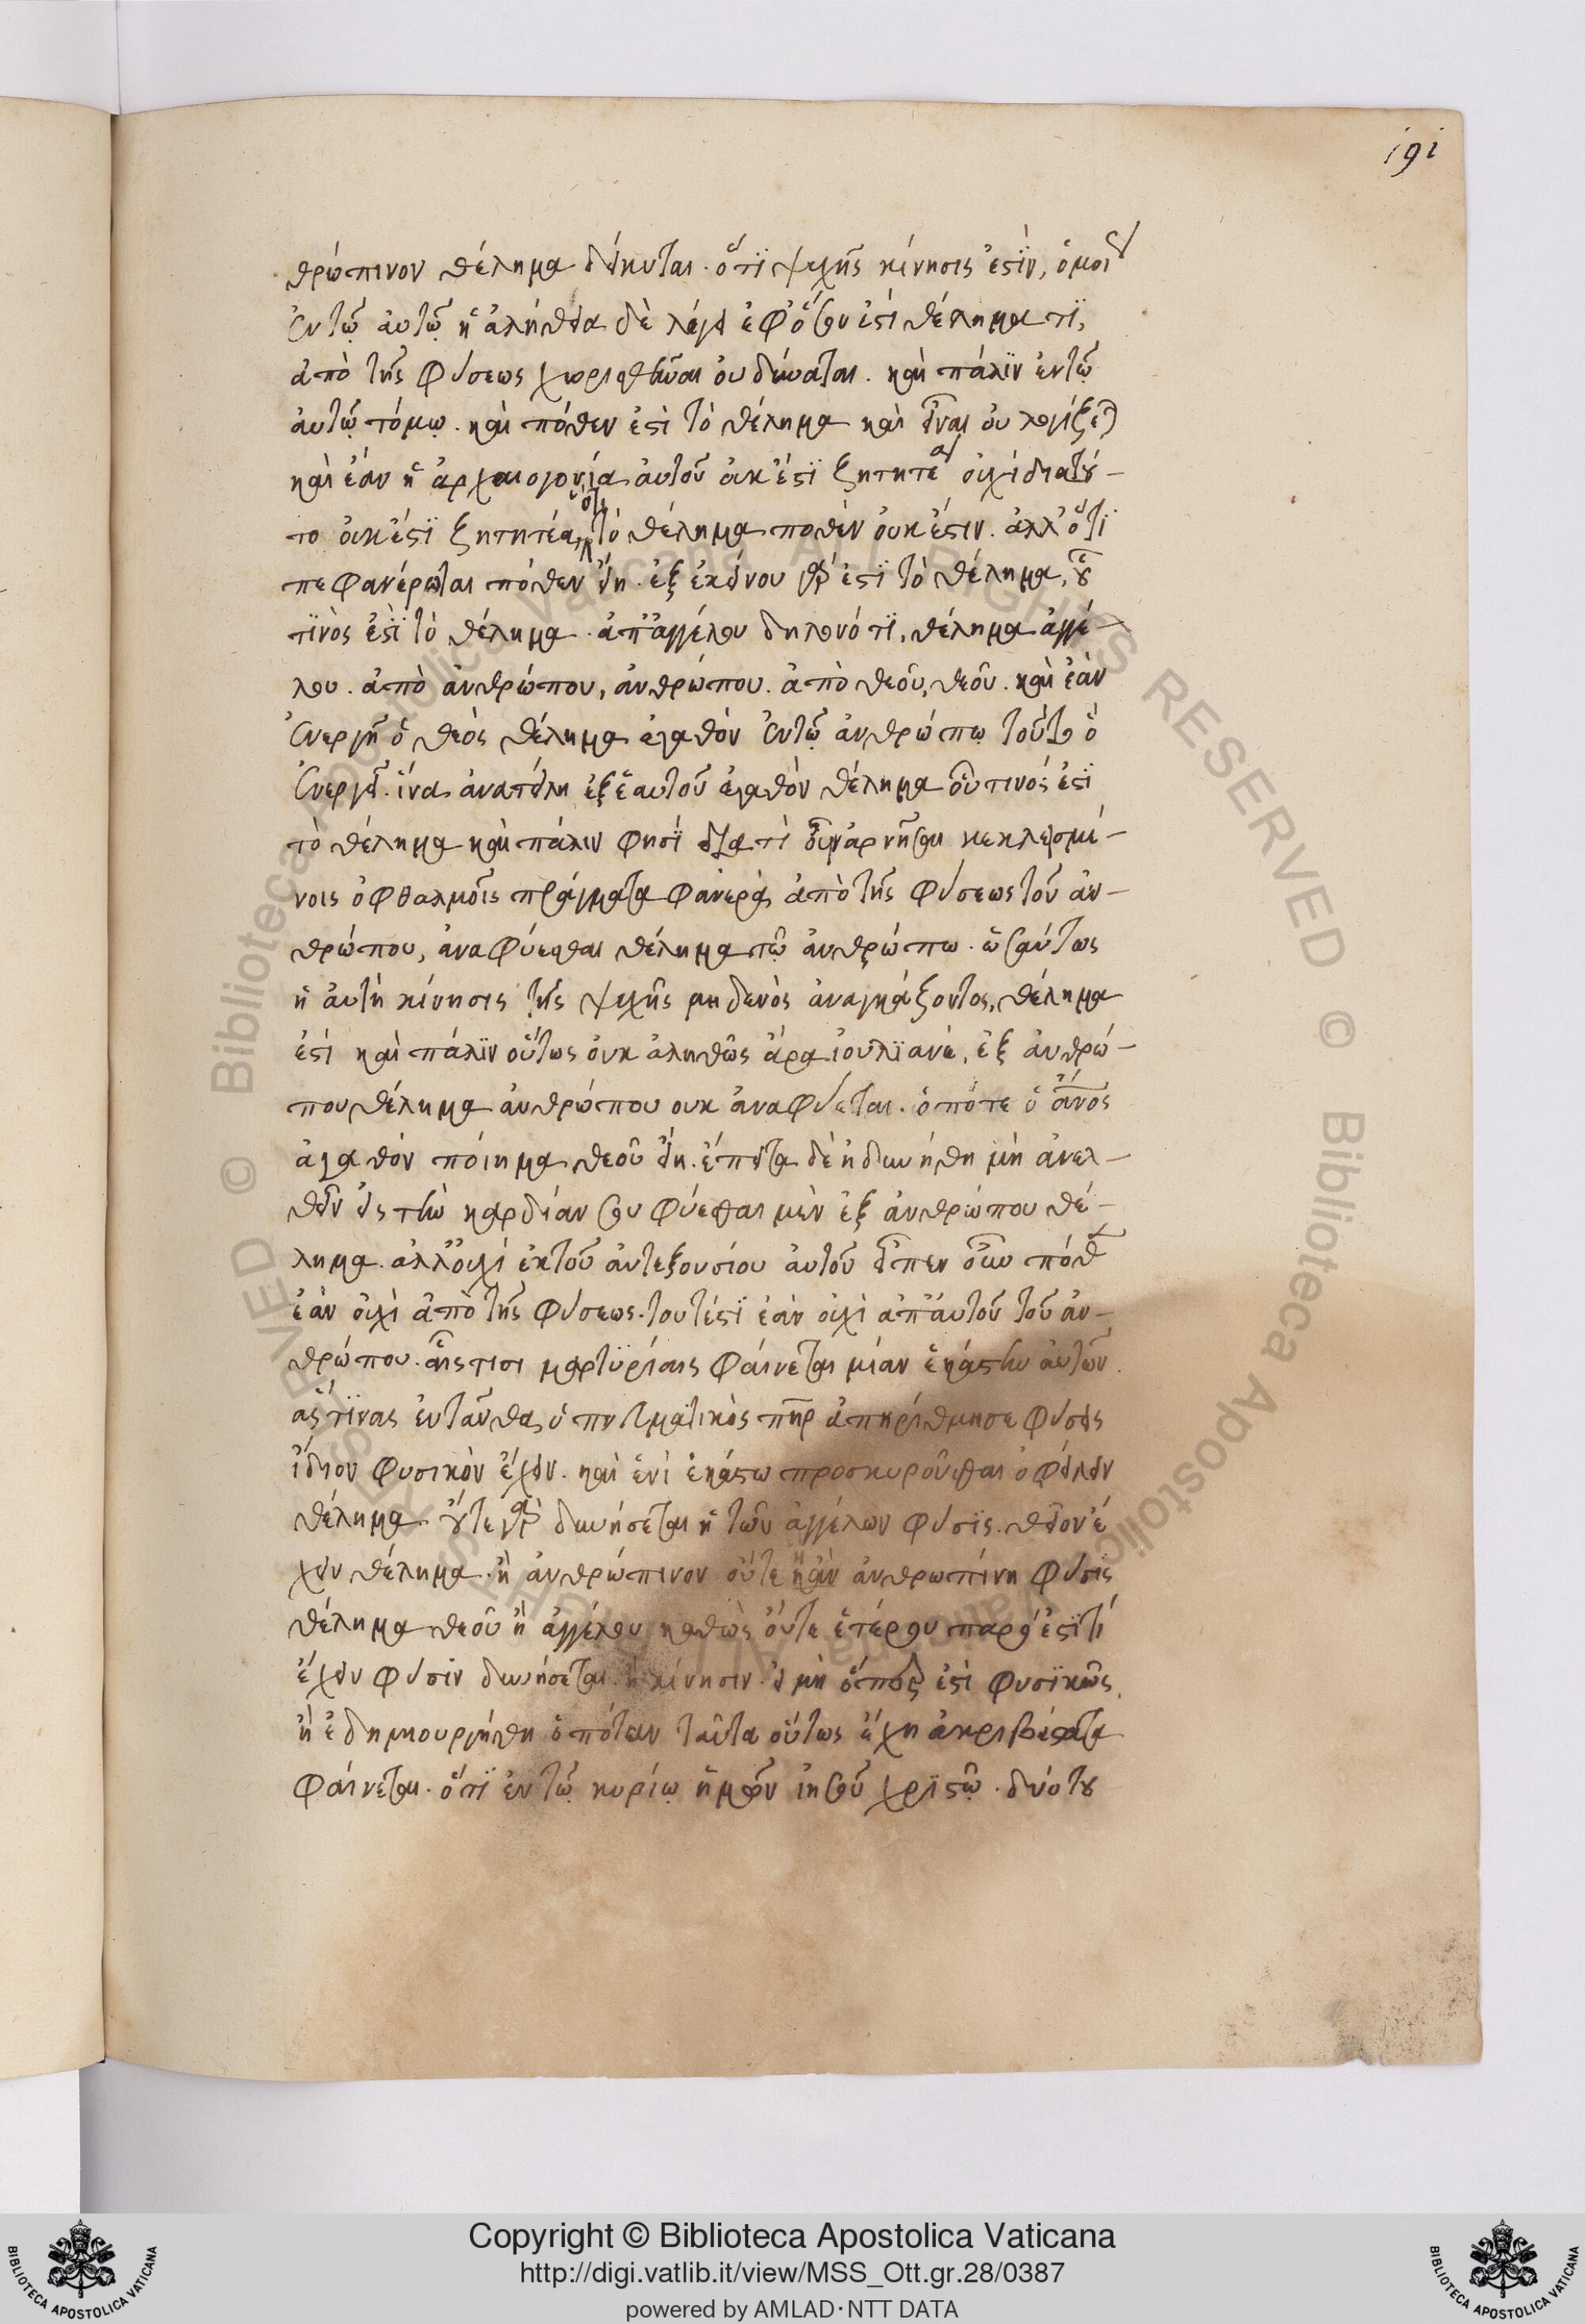 191
θρώπινον θέλημα δείκνυται. ὅτι ψυχῆς κίνησις ἐστὶν, ὁμοί
ἐν τῶ αὐτῶ ἡ ἀλήθεια δὲ λέγει ἐφ' ὅσον ἐστὶ θέλημα τί,
ἀπὸ τῆς φύσεως χωρισθῆναι οὐ δύναται. καὶ πάλιν ἐν τῶ
αὐτῶ τόμω. καὶ πόθεν ἐστὶ τὸ θέλημα καὶ εἶναι οὐ λογίζε
καὶ ἐὰν ἡ ἀρχαιογονία αὐτοῦ οὐκ ἔστι ζητητέα οὐχὶ διατοῦ-
το οὐκ ἔστι ζητητέα, ὅτι τὸ θέλημα ποθὲν οὐκ ἔστιν. ἀλλ' ὅτι
πεφανέρωται πόθεν εἴη. ἐξ ἐκείνου γάρ ἐστι τὸ θέλημα, οὗ
τινὸς ἐστὶ τὸ θέλημα. ἀπ' ἀγγέλου δηλονότι, θέλημα ἀγγέ-
λου. ἀπὸ ἀνθρώπου, ἀνθρώπου. ἀπὸ θεοῦ, θεοῦ. καὶ ἐὰν
ἐνεργῆ ὁ θεὸς θέλημα ἀγαθὸν ἐν τῶ ἀνθρώπω τοῦτο ὃ
ἐνεργεῖ. ἵνα ἀνατείλη ἐξ ἑαυτοῦ ἀγαθὸν θέλημα οὗτινός ἐστι
τὸ θέλημα καὶ πάλιν φησί διατί συναρνῆσαι κεκλεισμέ-
νοις ὀφθαλμοῖς πράγματα φανερὰ, ἀπὸ τῆς φύσεως τοῦ ἀν-
θρώπου, ἀναφύεσθαι θέλημα τῶ ἀνθρώπω. ὡσαύτως
ἡ αὐτὴ κίνησις τῆς ψυχῆς μηδενὸς ἀναγκάζοντος, θέλημα
ἐστί καὶ πάλιν οὕτως οὐκ ἀληθῶς ἄρα ἰουλιανέ, ἐξ ἀνθρώ-
που θέλημα ἀνθρώπου ουκ ἀναφύεται. ὁπότε ὁ ἄνος
ἀγαθόν ποίημα θεοῦ εἴη. ἔπειτα δὲ ἠδυνήθη μὴ ἀνελ-
θεῖν εἰς τὴν καρδίαν σου φύεσθαι μὲν ἐξ ἀνθρώπου θέ-
λημα. ἀλλ' οὐχὶ ἐκ τοῦ αὐτεξουσίου αὐτοῦ εἶπεν οὖν πόθεν
ἐὰν οὐχὶ ἀπὸ τῆς φύσεως. τουτέστι ἐὰν οὐχὶ ἀπ' αὐτοῦ τοῦ ἀν-
θρώπου. αἷς τισι μαρτυρίαις φαίνεται μίαν ἑκάστην αὐτῶν
ἅς τινας ἐνταῦθα, ὁ πνευματικὸς πηρ ἀπηρίθμησε φύσεις
ἴδιον φυσικὸν ἔχειν. καὶ ἑνὶ ἑκάστω προσκυροῦσθαι ὀφείλειν
θέλημα. οὔτε γὰρ δυνήσεται ἡ τῶν ἀγγέλων φύσις. θεῖον ἔ
χειν θέλημα. ἢ ἀνθρώπινον οὔτε ἡ ἀνθρωπίνη φύσις
θέλημα θεοῦ ἢ ἀγγέλου καθὼς οὔτε ἑτέρου παρ' ὅ ἐστι τί
ἔχειν φύσιν δυνήσεται. ἢ κίνησιν. εἰ μὴ ὅπερ ἐστὶ φυσικῶς
ἢ ἐδημιουργήθη ὁπόταν ταῦτα οὕτως ἔχη ἀκριβέστατα
φαίνεται. ὅτι ἐν τῶ κυρίω ἡμῶν ἰησοῦ χριστῶ. δύο του
Copyright © Biblioteca Apostolica Vaticana
http://digi.vatlib.it/view/MSS_Ott.gr.28/0387
powered by AMLAD·NTT DATA